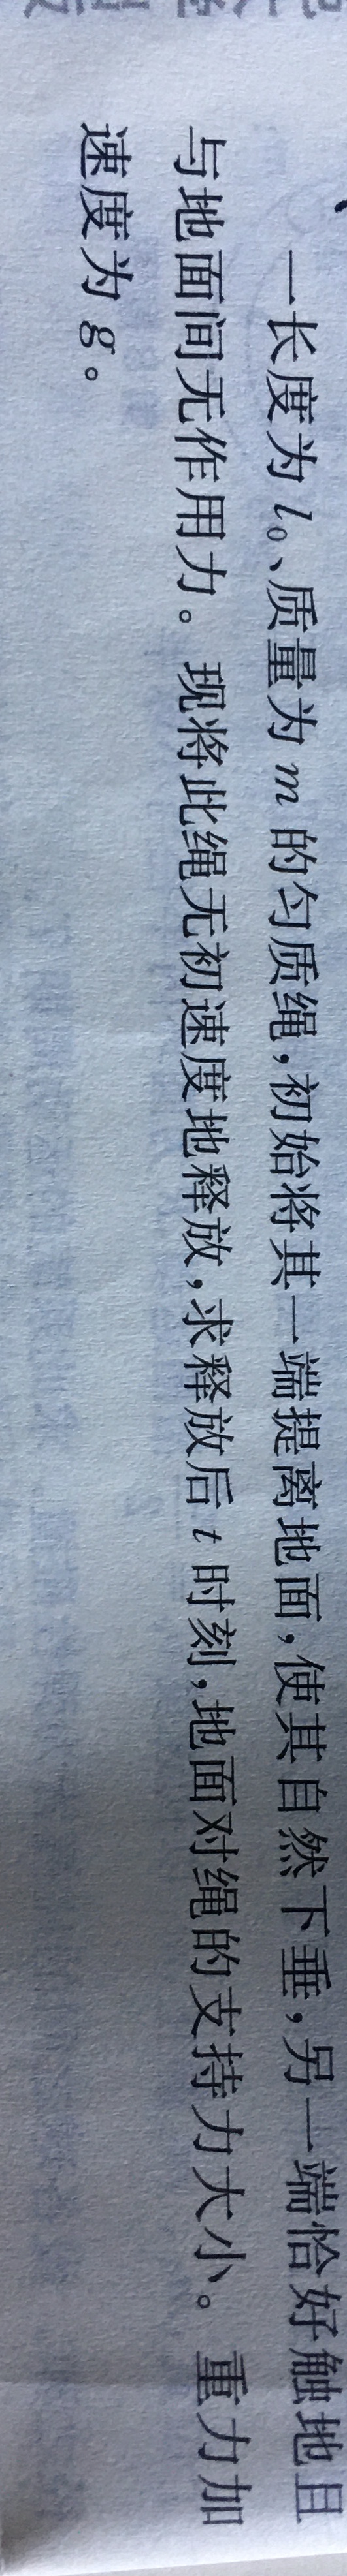 一长度为 l₀、质量为 m 的匀质绳,初始将其一端提离地面,使其自然下垂,另一端恰好触地且
与地面间无作用力。现将此绳无初速度地释放,求释放后 t 时刻,地面对绳的支持力大小。重力加
速度为 g。